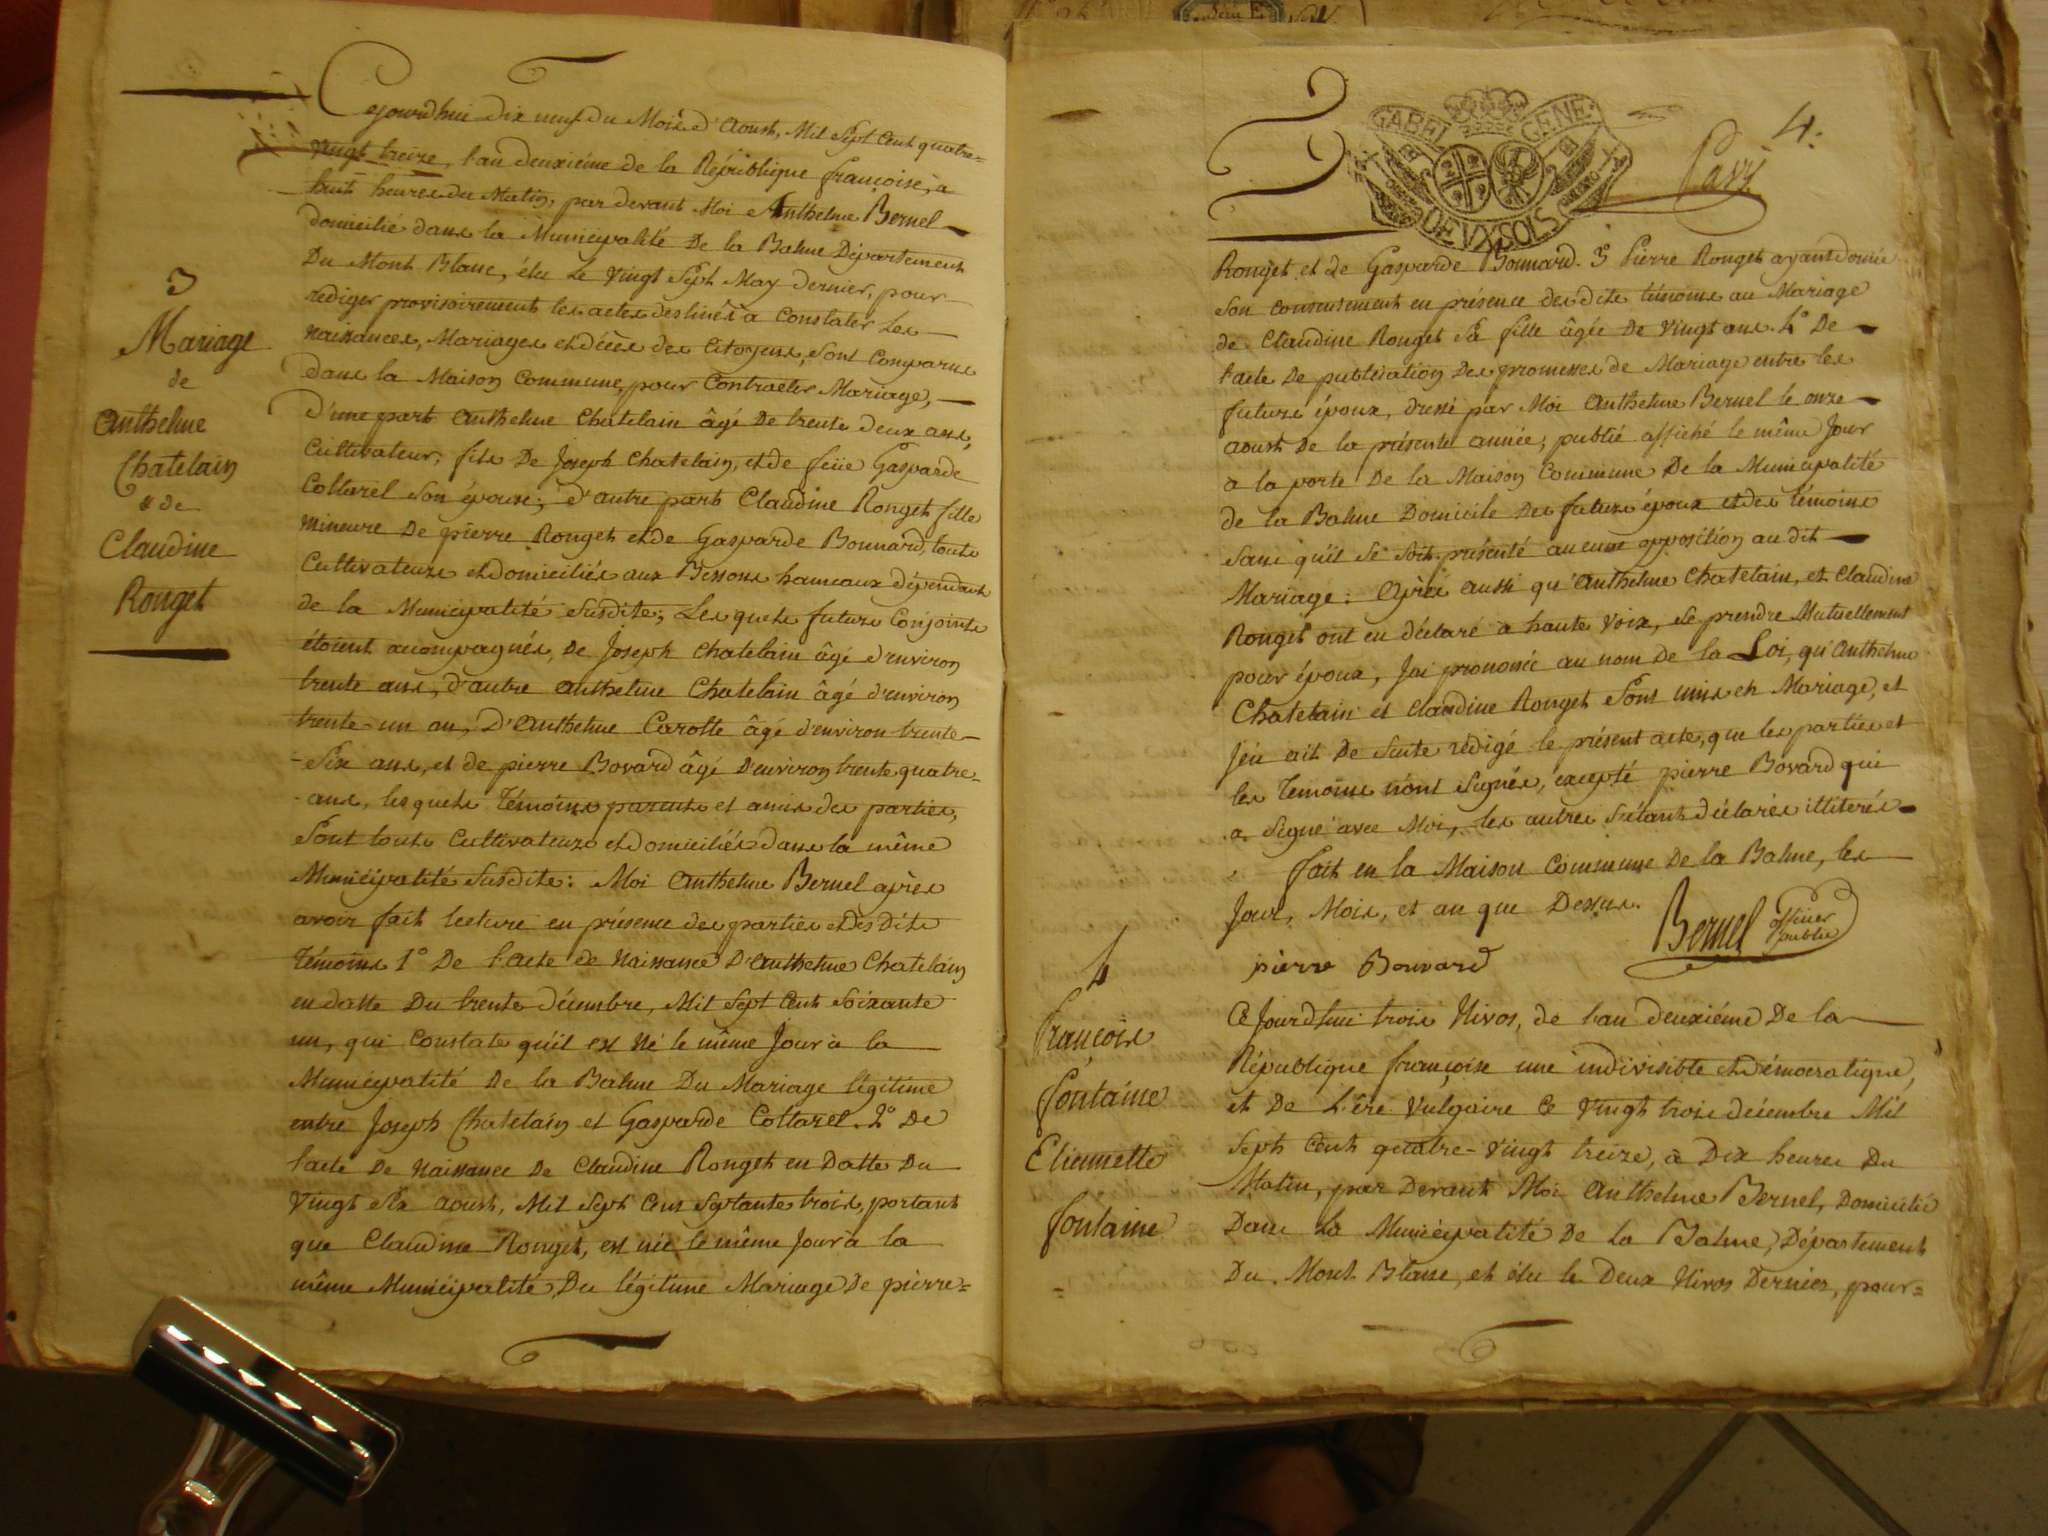 3
Mariage
de
Anthelme
Chatelain
& de
Claudine
Rouget
Cejourdhui dix neuf du Mois d'Aoust, Mil Sept Cent quatre=
Vingt treize, l'an deuxiéme de la République françoise, a
huit heures du Matin, par devant Moi Anthelme Bernel
domicilié dans la Municipalité De la Balme Département
Du Mont Blanc, élu Le Vingt Sept May dernier, pour
rediger provisoirement les actes destinés a Constater Les
Naissances, Mariages et décès des Citoyens, Sont Comparus
dans la Maison Commune, pour Contracter Mariage,
D'une part Anthelme Chatelain âgé De trente deux ans,
Cultivateur, fils De Joseph Chatelain, et de feüe Gasparde
Collarel Son épouse; d'autre part Claudine Rouget fille
Mineure De pierre Rouget et de Gasparde Bonnard, touts
Cultivateurs et domiciliés aux Bessons hameaux dépendant
de la Municipalité Susdite; Les quels futurs Conjoints
étoient acompagnés, De Joseph Chatelain âgé d'environ
trente ans, d'autre Anthelme Chatelain âgé d'environ
trente-un an, D'Anthelme Carotte âgé d'environ trente-
-Six ans, et de pierre Bovard âgé D'environ trente quatre-
-ans, les quels Témoins parents et amis des parties,
Sont touts Cultivateurs et domiciliés dans la même
Municipalité Susdite: Moi Anthelme Bernel après
avoir fait lecture en présence des parties et des Dits
Témoins 1° De l'acte de Naissance D'Anthelme Chatelain
en datte Du trente décembre, Mil Sept Cent Soixante
un, qui Constate qu'il est Né le même Jour à la
Municipalité De la Balme Du Mariage légitime
entre Joseph Chatelain et Gasparde Collarel. 2° De
l'acte De Naissance De Claudine Rouget en Datte Du
Vingt Six aoust, Mil Sept Cent Septante trois, portant
que Claudine Rouget, est née le même Jour à la
même Municipalité Du légitime Mariage De pierre=
GABEL GENE
DEUX SOLS
4.
Rouget et de Gasparde Bonnard. 3° Pierre Rouget ayant donné
Son consentement en présence des dits témoins au Mariage
de Claudine Rouget Sa fille âgée De Vingt ans. 4° De
l'acte De publication Des promesses de Mariage entre les
futurs époux, dressé par Moi Anthelme Bernel le onze
aoust De la présente année, publié affiché le même Jour
a la porte De la Maison Commune De la Municipalité
de la Balme Domicile Des futurs époux et des témoins
Sans qu'il Se Soit présenté aucune opposition au dit
Mariage. Après aussi qu'Anthelme Chatelain, et Claudine
Rouget ont eu déclaré a haute Voix, Se prendre Mutuellement
pour époux, J'ai prononcé au nom de la Loi, qu'Anthelme
Chatelain et Claudine Rouget Sont unis en Mariage, et
J'en ait De Suite rédigé le présent acte, que les parties et
les Témoins n'ont Signés, excepté pierre Bovard qui
a Signé avec Moi, les autres S'étant déclarés illiterés
fait en la Maison Commune De la Balme, les
Jour, Mois, et an que Dessus.
Bernel officier public
pierre Bouvard
4
françois
fontaine
Etiennette
fontaine
Ce Jourdhui trois Nivos, de l'an deuxiéme De la
République françoise une indivisible et démocratique,
et De L'ère Vulgaire Ce Vingt trois décembre Mil
Sept Cent quatre-Vingt treize, à Dix heures Du
Matin, par Devant Moi Anthelme Bernel, Domicilié
Dans La Municipalité De La Balme, Département
Du Mont Blanc, et élu le Deux Nivos Dernier, pour=